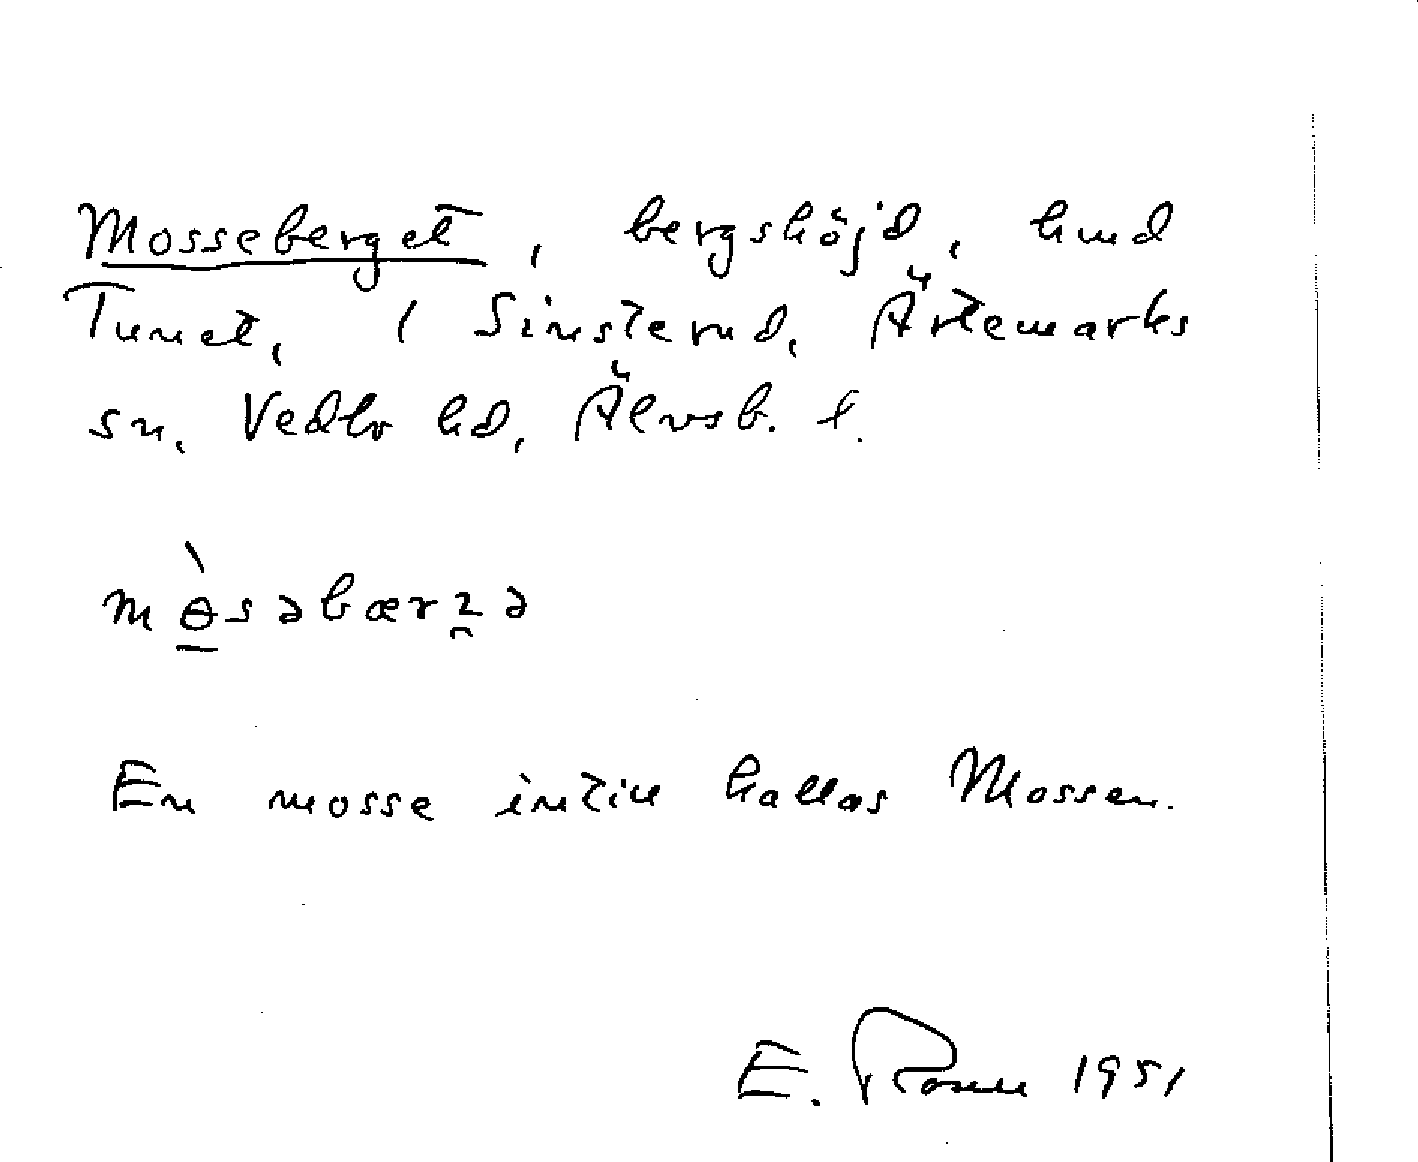 Mosseberget, bergshöjd, hmd
Tunet, i Sinsterud, Ärtemarks
sn. Vedbo hd, Älvsb. l.
mɵ̀səbærꝛə
En mosse intill kallas Mossen.
E. 1951